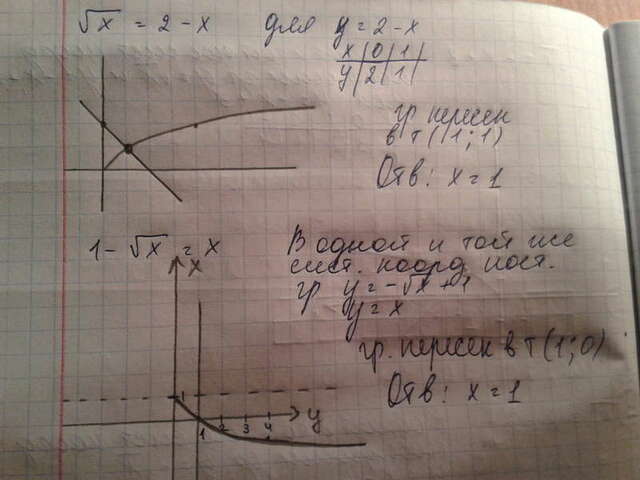 √x = 2 - x для y = 2 - x
x | 0 | 1 |
y | 2 | 1 |
гр. пересек
в т (1; 1)
Отв: x = 1
1 - √x = x
В одной и той же
сист. коорд пост.
гр y = -√x + 1
y = x
гр. пересек в т (1; 0)
Отв: x = 1
x
1
1 2 3 4 y